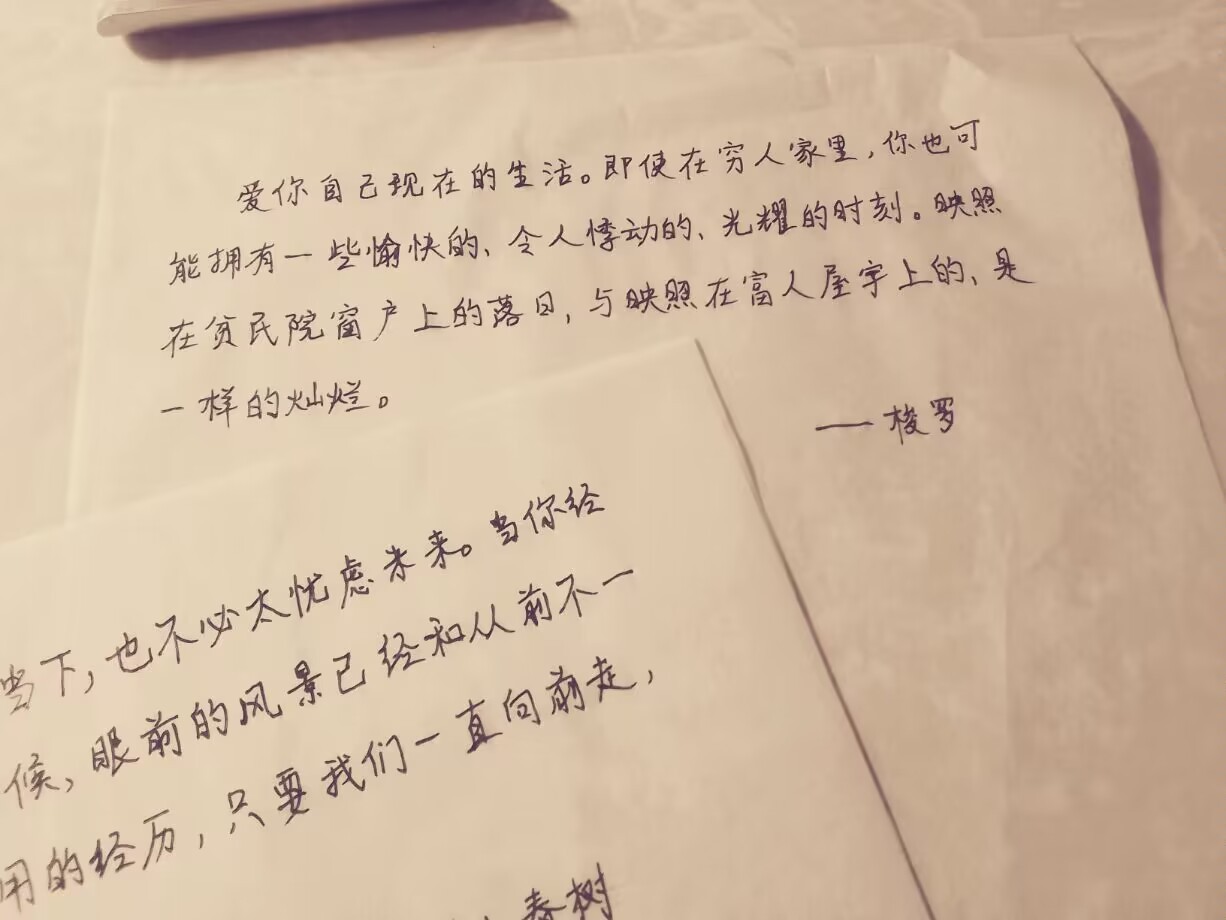 爱你自己现在的生活。即使在穷人家里，你也可
能拥有一些愉快的、令人悸动的、光耀的时刻。映照
在贫民院窗户上的落日，与映照在富人屋宇上的、是
一样的灿烂。
——梭罗
当下，也不必太忧虑未来。当你经
候，眼前的风景已经和从前不一
用的经历，只要我们一直向前走，
春树